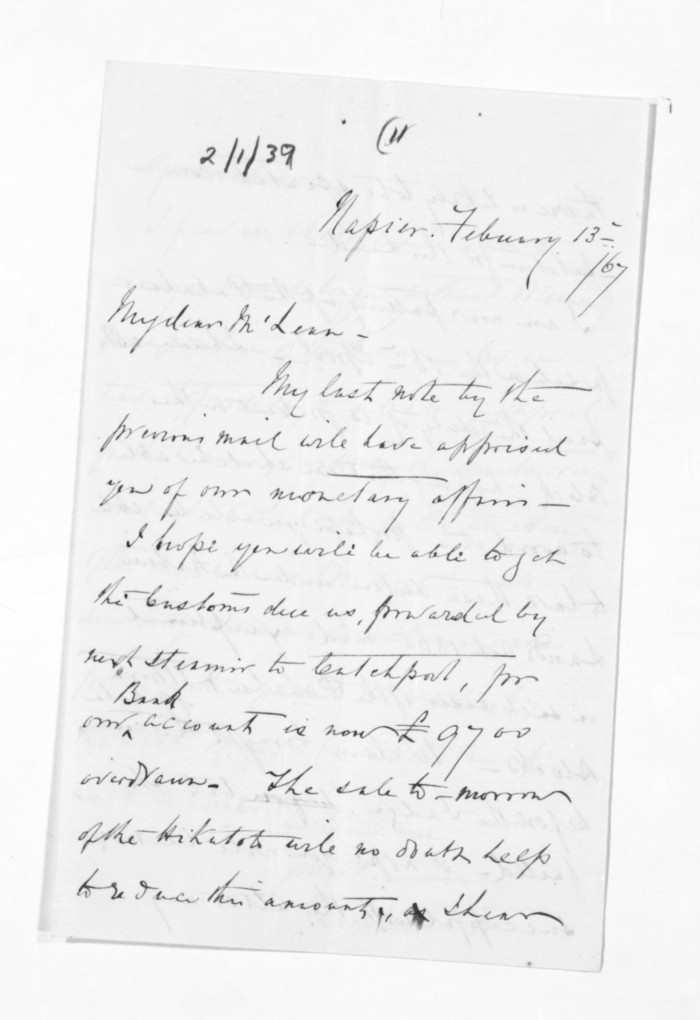 2/1/39
(11
Napier. February 13th
/67
My dear McLean -
My last note by the
previous mail will have apprised
you of our monetary affairs -
I hope you will be able to get
the Customs due us, forwarded by
next steamer to Catchpool, for
our Bank account is now £9700
overdrawn - The sale to-morrow
of the Hikutoto will no doubt help
to reduce this amount, as I hear